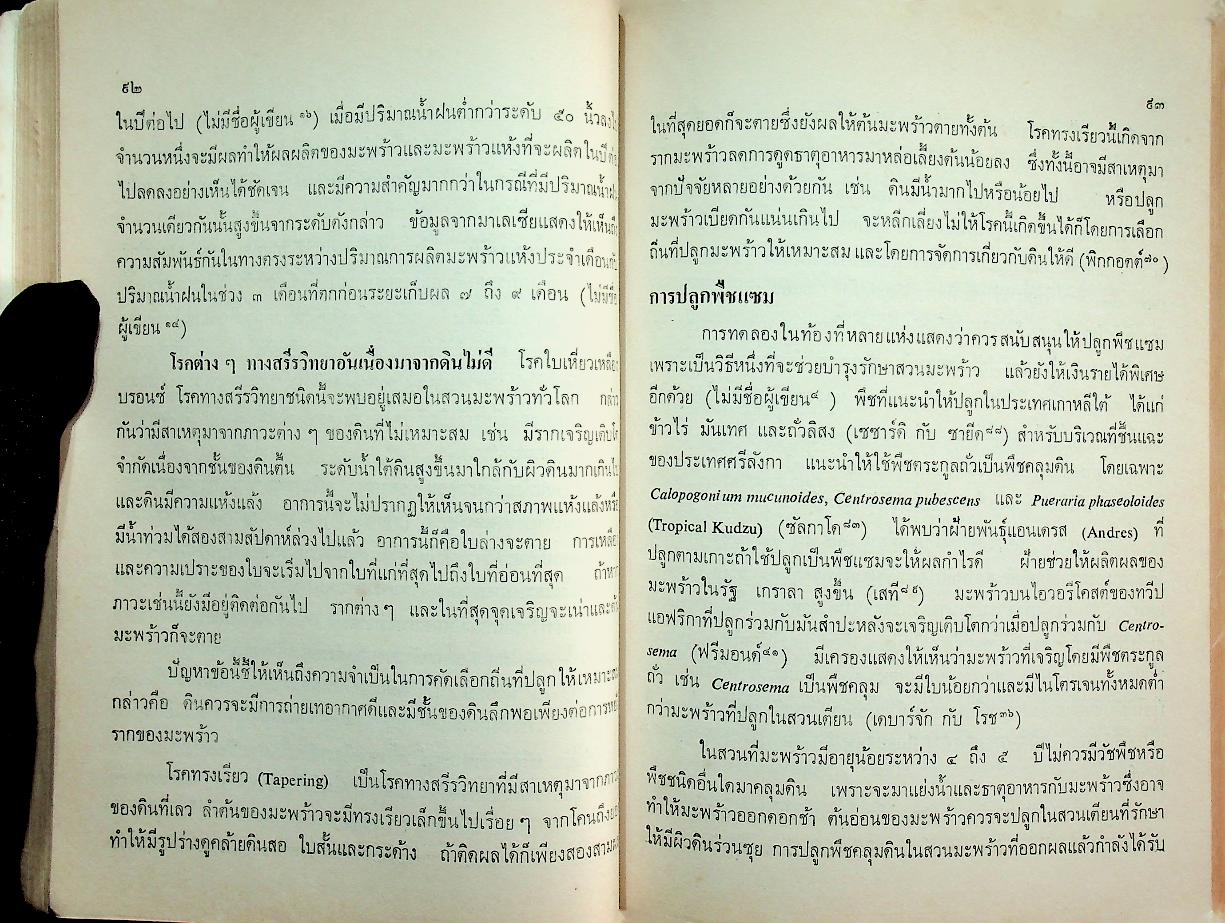 ๙๒
ในปีต่อไป (ไม่มีชื่อผู้เขียน ๑๖) เมื่อมีปริมาณน้ำฝนต่ำกว่าระดับ ๕๐ นิ้วลง
จำนวนหนึ่งจะมีผลทำให้ผลผลิตของมะพร้าวและมะพร้าวแห้งที่จะผลิตในปี
ไปลดลงอย่างเห็นได้ชัดเจน และมีความสำคัญมากกว่าในกรณีที่มีปริมาณน้ำ
จำนวนเดียวกันนั้นสูงขึ้นจากระดับดังกล่าว ข้อมูลจากมาเลเซียแสดงให้เห็น
ความสัมพันธ์กันในทางตรงระหว่างปริมาณการผลิตมะพร้าวแห้งประจำเดือน
ปริมาณน้ำฝนในช่วง ๓ เดือนที่ตกก่อนระยะเก็บผล ๗ ถึง ๙ เดือน (ไม่มีชื่อ
ผู้เขียน ๑๔)
โรคต่าง ๆ ทางสรีรวิทยาอันเนื่องมาจากดินไม่ดี โรคใบเหี่ยวเหลือง
บรอนซ์ โรคทางสรีรวิทยาชนิดนี้จะพบอยู่เสมอในสวนมะพร้าวทั่วโลก กล่าว
กันว่ามีสาเหตุมาจากภาวะต่าง ๆ ของดินที่ไม่เหมาะสม เช่น มีรากเจริญเติบโต
จำกัดเนื่องจากชั้นของดินตื้น ระดับน้ำใต้ดินสูงขึ้นมาใกล้กับผิวดินมากเกินไป
และดินมีความแห้งแล้ง อาการนี้จะไม่ปรากฏให้เห็นจนกว่าสภาพแห้งแล้งหรือ
มีน้ำท่วมได้สองสามสัปดาห์ล่วงไปแล้ว อาการนี้ก็คือใบล่างจะตาย การเหลือง
และความเปราะของใบจะเริ่มไปจากใบที่แก่ที่สุดไปถึงใบที่อ่อนที่สุด ถ้าหาก
ภาวะเช่นนี้ยังมีอยู่ติดต่อกันไป รากต่างๆ และในที่สุดจุดเจริญจะเน่าและ
มะพร้าวก็จะตาย
ปัญหาข้อนี้ชี้ให้เห็นถึงความจำเป็นในการคัดเลือกถิ่นที่ปลูกให้เหมาะสม
กล่าวคือ ดินควรจะมีการถ่ายเทอากาศดีและมีชั้นของดินลึกพอเพียงต่อการหยั่ง
รากของมะพร้าว
โรคทรงเรียว (Tapering) เป็นโรคทางสรีรวิทยาที่มีสาเหตุมาจากภาวะ
ของดินที่เลว ลำต้นของมะพร้าวจะมีทรงเรียวเล็กขึ้นไปเรื่อยๆ จากโคนถึงยอด
ทำให้มีรูปร่างดูคล้ายดินสอ ใบสั้นและกระด้าง ถ้าติดผลได้ก็เพียงสองสามผล
๙๓
ในที่สุดยอดก็จะตายซึ่งยังผลให้ต้นมะพร้าวตายทั้งต้น โรคทรงเรียวนี้เกิดจาก
รากมะพร้าวลดการดูดธาตุอาหารมาหล่อเลี้ยงต้นน้อยลง ซึ่งทั้งนี้อาจมีสาเหตุมา
จากปัจจัยหลายอย่างด้วยกัน เช่น ดินมีน้ำมากไปหรือน้อยไป หรือปลูก
มะพร้าวเบียดกันแน่นเกินไป จะหลีกเลี่ยงไม่ให้โรคนี้เกิดขึ้นได้ก็โดยการเลือก
ถิ่นที่ปลูกมะพร้าวให้เหมาะสม และโดยการจัดการเกี่ยวกับดินให้ดี (พิกกอตต์๗๐)
การปลูกพืชแซม
การทดลองในท้องที่หลายแห่งแสดงว่าควรสนับสนุนให้ปลูกพืชแซม
เพราะเป็นวิธีหนึ่งที่จะช่วยบำรุงรักษาสวนมะพร้าว แล้วยังให้เงินรายได้พิเศษ
อีกด้วย (ไม่มีชื่อผู้เขียน๘ ) พืชที่แนะนำให้ปลูกในประเทศเกาหลีใต้ ได้แก่
ข้าวไร่ มันเทศ และถั่วลิสง (เซซาร์ดิ กับ ซายีด๘๘) สำหรับบริเวณที่ชื้นแฉะ
ของประเทศศรีลังกา แนะนำให้ใช้พืชตระกูลถั่วเป็นพืชคลุมดิน โดยเฉพาะ
Calopogonium mucunoides, Centrosema pubescens และ Pueraria phaseoloides
(Tropical Kudzu) (ซัลกาโด๘๓) ได้พบว่าฝ้ายพันธุ์แอนเดรส (Andres) ที่
ปลูกตามเกาะถ้าใช้ปลูกเป็นพืชแซมจะให้ผลกำไรดี ฝ้ายช่วยให้ผลิตผลของ
มะพร้าวในรัฐ เกราลา สูงขึ้น (เสที๘๙) มะพร้าวบนไอวอรีโคสต์ของทวีป
แอฟริกาที่ปลูกร่วมกับมันสำปะหลังจะเจริญเติบโตกว่าเมื่อปลูกร่วมกับ Centro-
sema (ฟรีมอนด์๔๑) มีเครองแสดงให้เห็นว่ามะพร้าวที่เจริญโดยมีพืชตระกูล
ถั่ว เช่น Centrosema เป็นพืชคลุม จะมีใบน้อยกว่าและมีไนโตรเจนทั้งหมดต่ำ
กว่ามะพร้าวที่ปลูกในสวนเตียน (เดบาร์จัก กับ โรช๓๖)
ในสวนที่มะพร้าวมีอายุน้อยระหว่าง ๔ ถึง ๕ ปีไม่ควรมีวัชพืชหรือ
พืชชนิดอื่นใดมาคลุมดิน เพราะจะมาแย่งน้ำและธาตุอาหารกับมะพร้าวซึ่งอาจ
ทำให้มะพร้าวออกดอกช้า ต้นอ่อนของมะพร้าวควรจะปลูกในสวนเตียนที่รักษา
ให้มีผิวดินร่วนซุย การปลูกพืชคลุมดินในสวนมะพร้าวที่ออกผลแล้วกำลังได้รับ